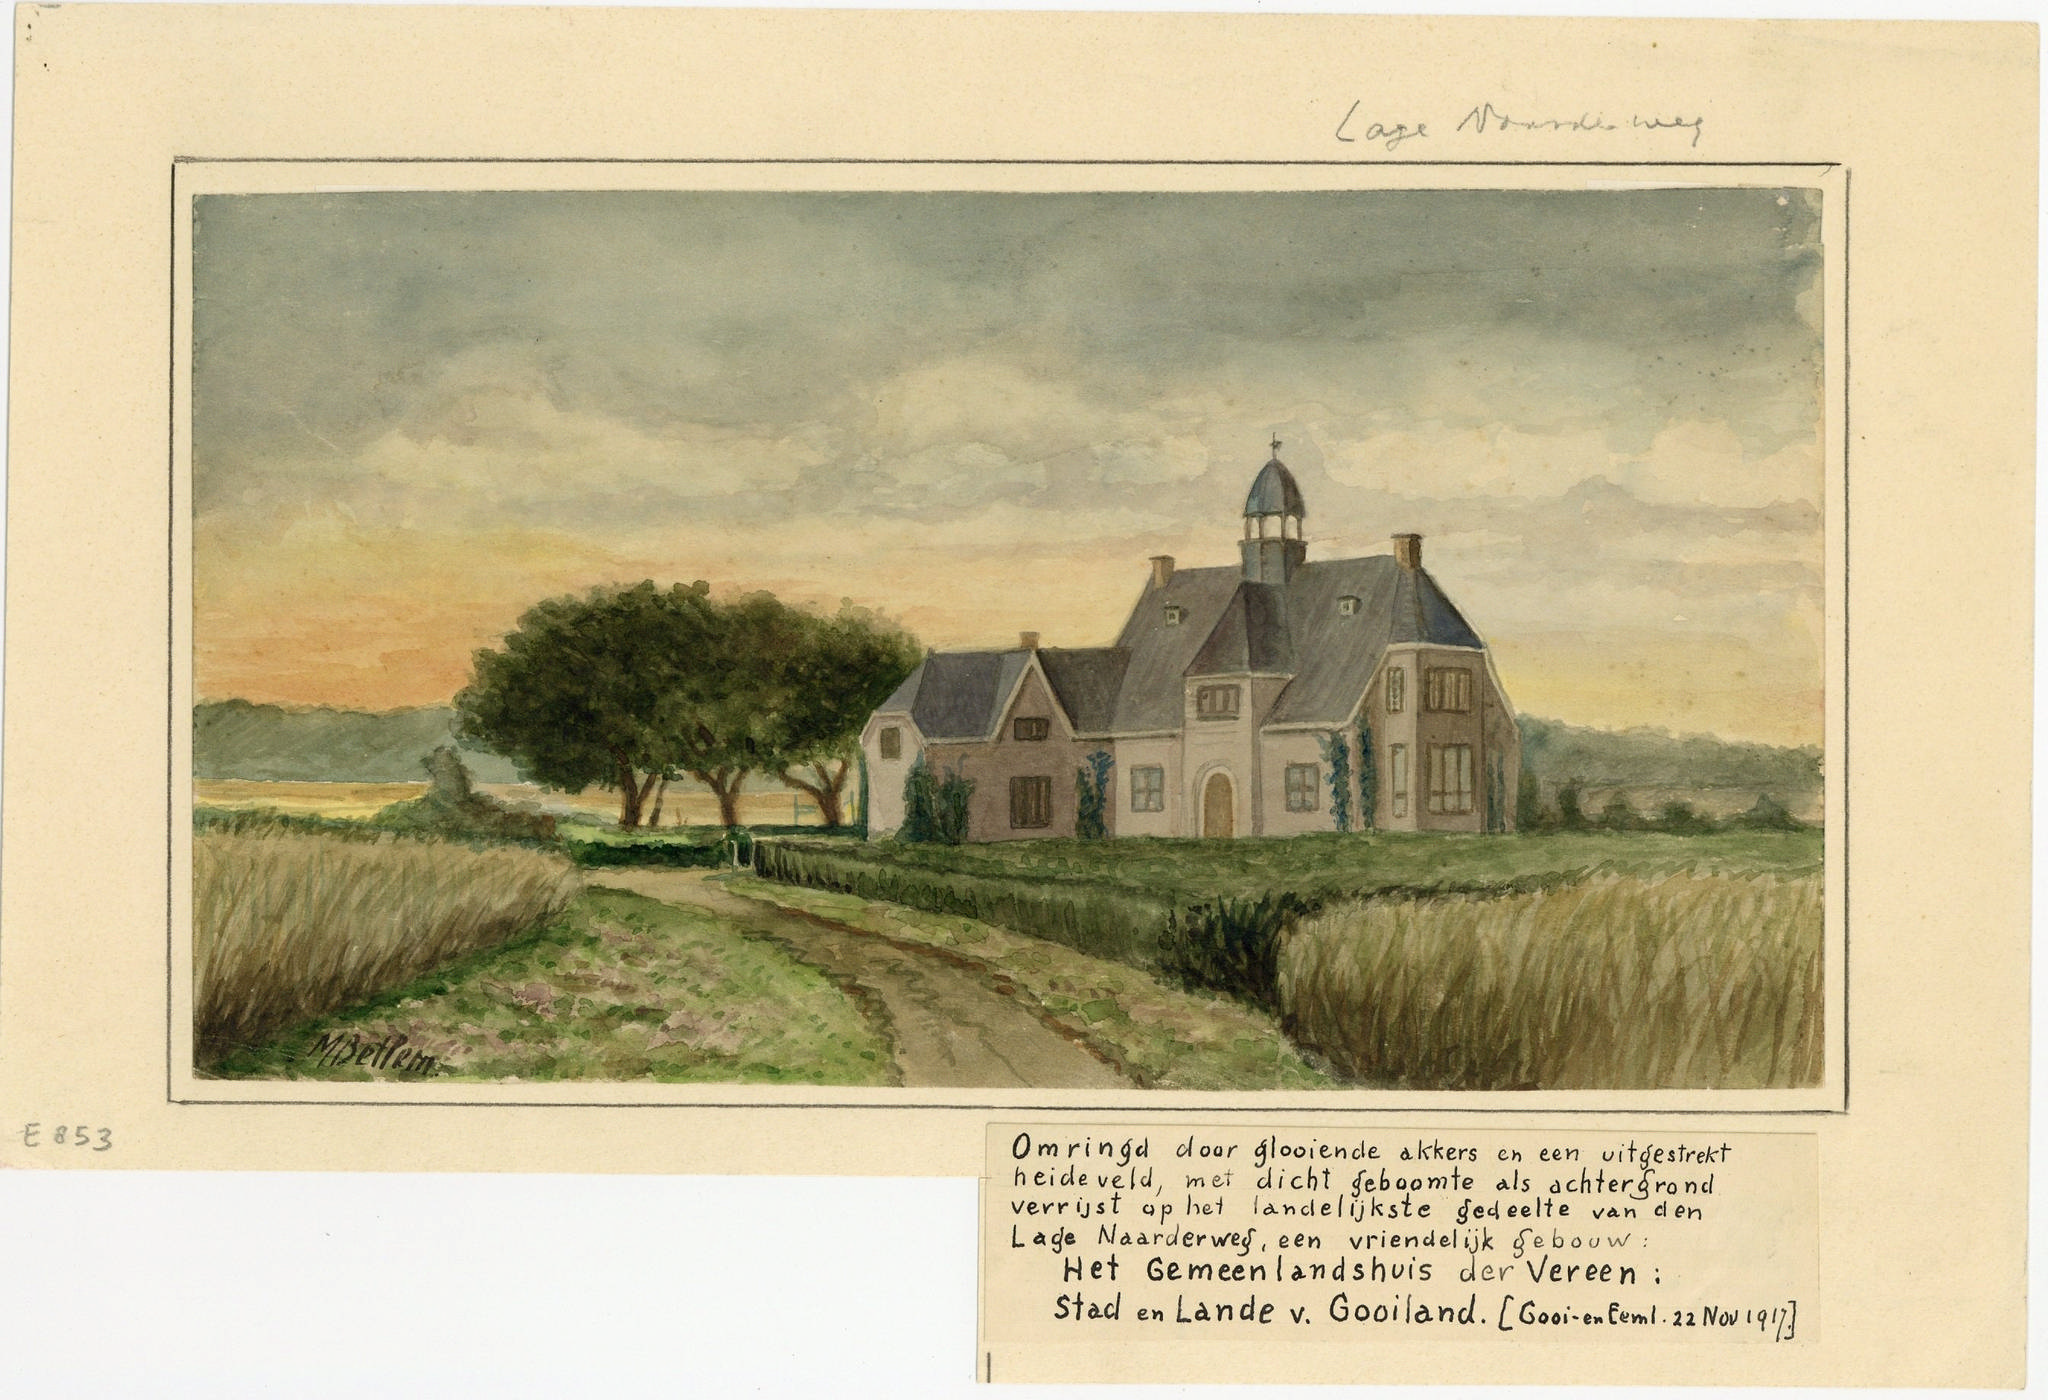 Lage Naarderweg
M Bettem.
E 853
Omringd door glooiende akkers en een uitgestrekt
heideveld, met dicht geboomte als achtergrond
verrijst op het landelijkste gedeelte van den
Lage Naarderweg, een vriendelijk gebouw:
Het Gemeenlandshuis der Vereen:
Stad en Lande v. Gooiland. [Gooi-en Eeml. 22 Nov 1917.]